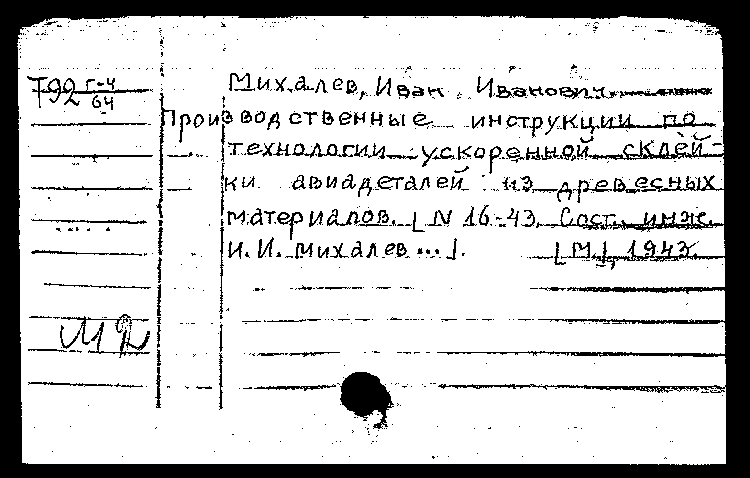 Т92 г-4
64
Михалев, Иван Иванович.
Производственные инструкции по
технологии ускоренной склей-
ки авиадеталей из древесных
материалов. [N 16-43. Сост. инж.
И. И. Михалев...]. [М.], 1943.